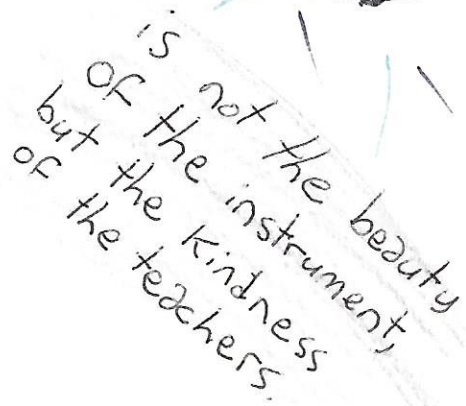 is not the beauty
of the instrument,
but the kindness
of the teachers.